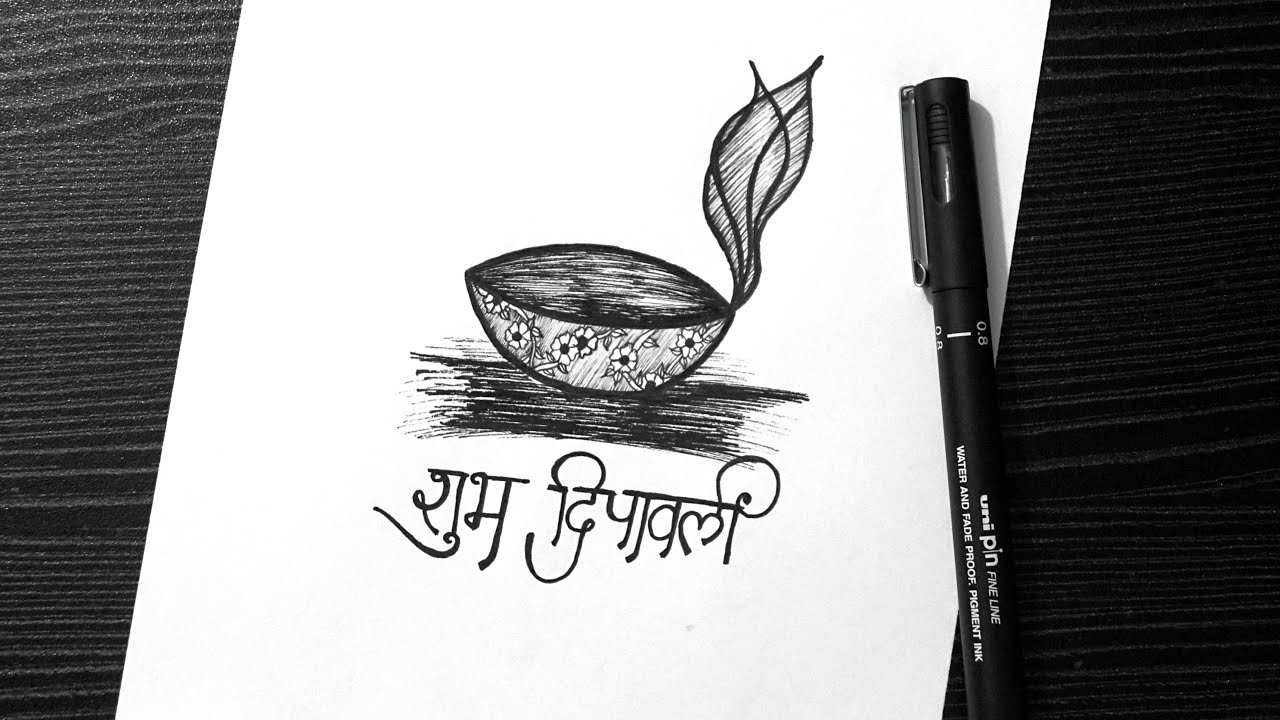 शुभ दिपावली
0.8
0.8
uni pin FINE LINE
WATER AND FADE PROOF, PIGMENT INK